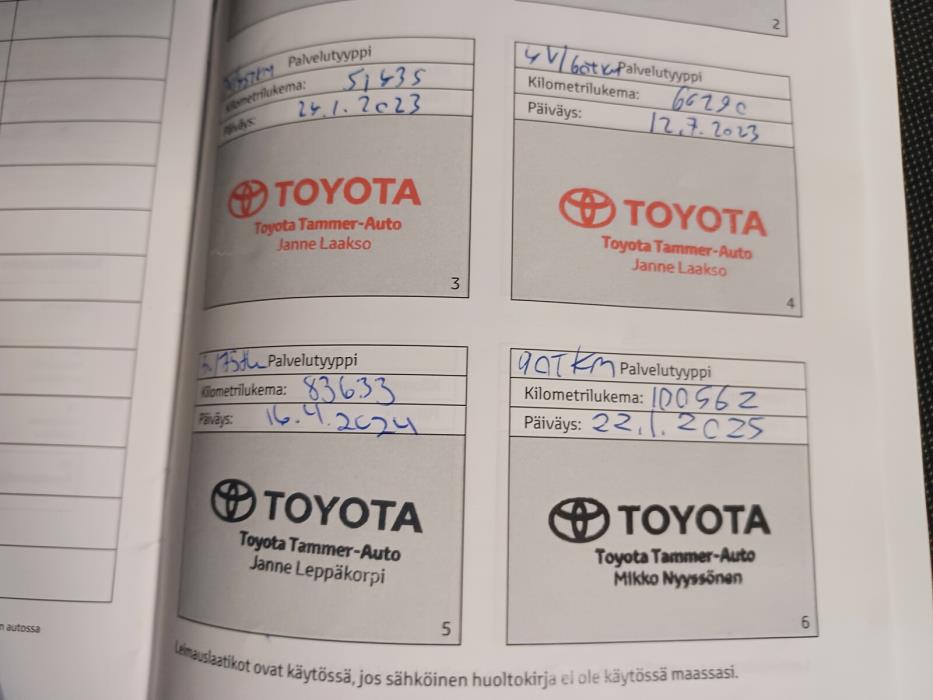 2
Palvelutyyppi
Kilometrilukema: 51435
Päiväys: 24.1.2023
TOYOTA
Toyota Tammer-Auto
Janne Laakso
3
4V/60tkm Palvelutyyppi
Kilometrilukema: 66290
Päiväys: 12.7.2023
TOYOTA
Toyota Tammer-Auto
Janne Laakso
4
Palvelutyyppi
Kilometrilukema: 83633
Päiväys: 16.4.2024
TOYOTA
Toyota Tammer-Auto
Janne Leppäkorpi
5
90TKM Palvelutyyppi
Kilometrilukema: 100562
Päiväys: 22.1.2025
TOYOTA
Toyota Tammer-Auto
Mikko Nyyssönen
6
n autossa
Leimauslaatikot ovat käytössä, jos sähköinen huoltokirja ei ole käytössä maassasi.